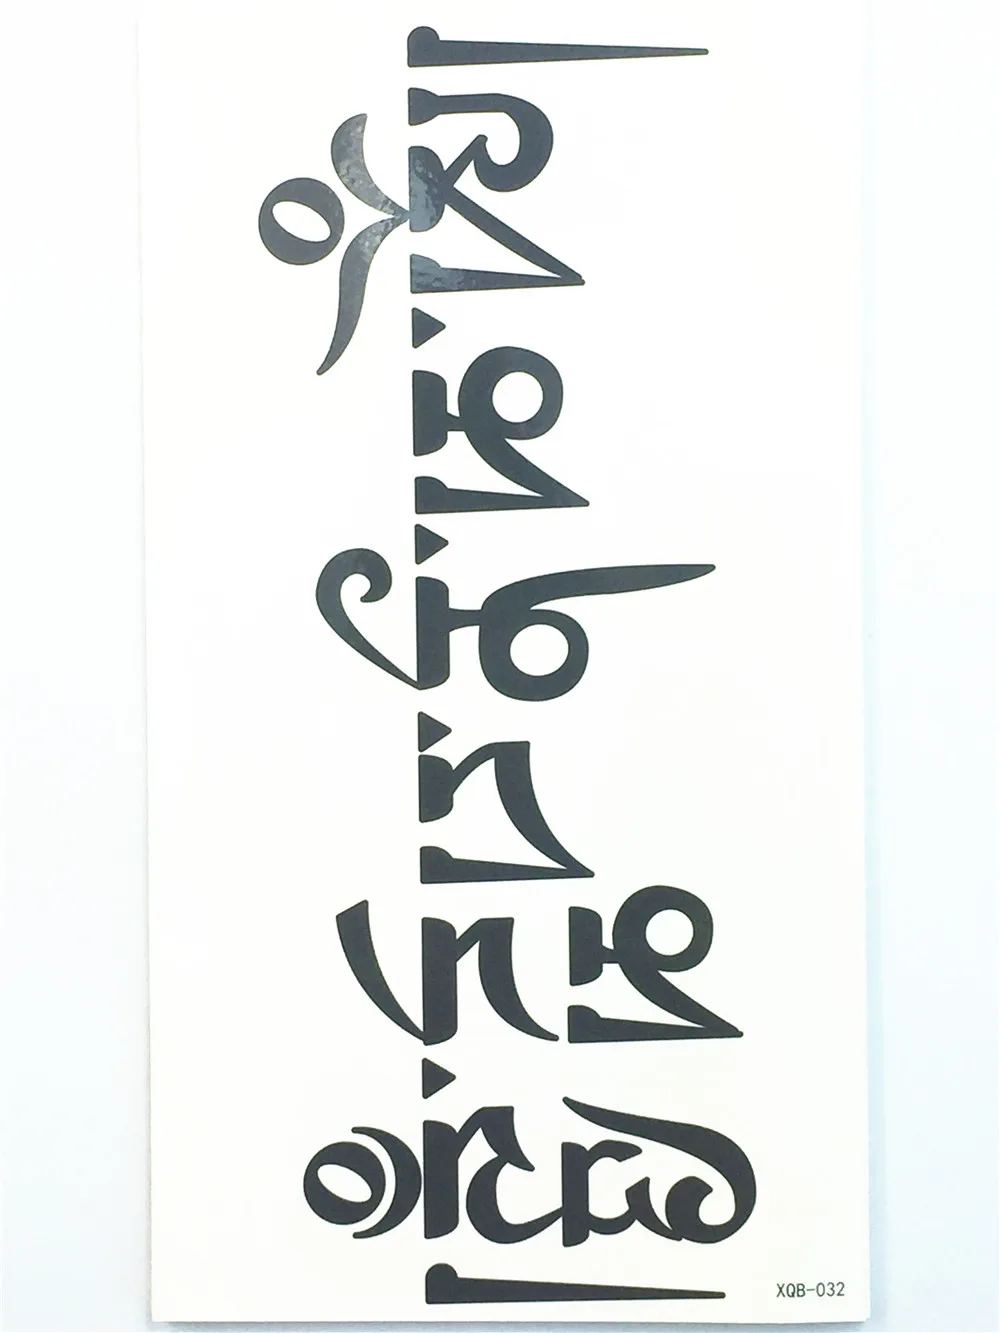 །ཨོཾ་མ་ཎི་པདྨེ་ཧཱུྃ།
XQB-032